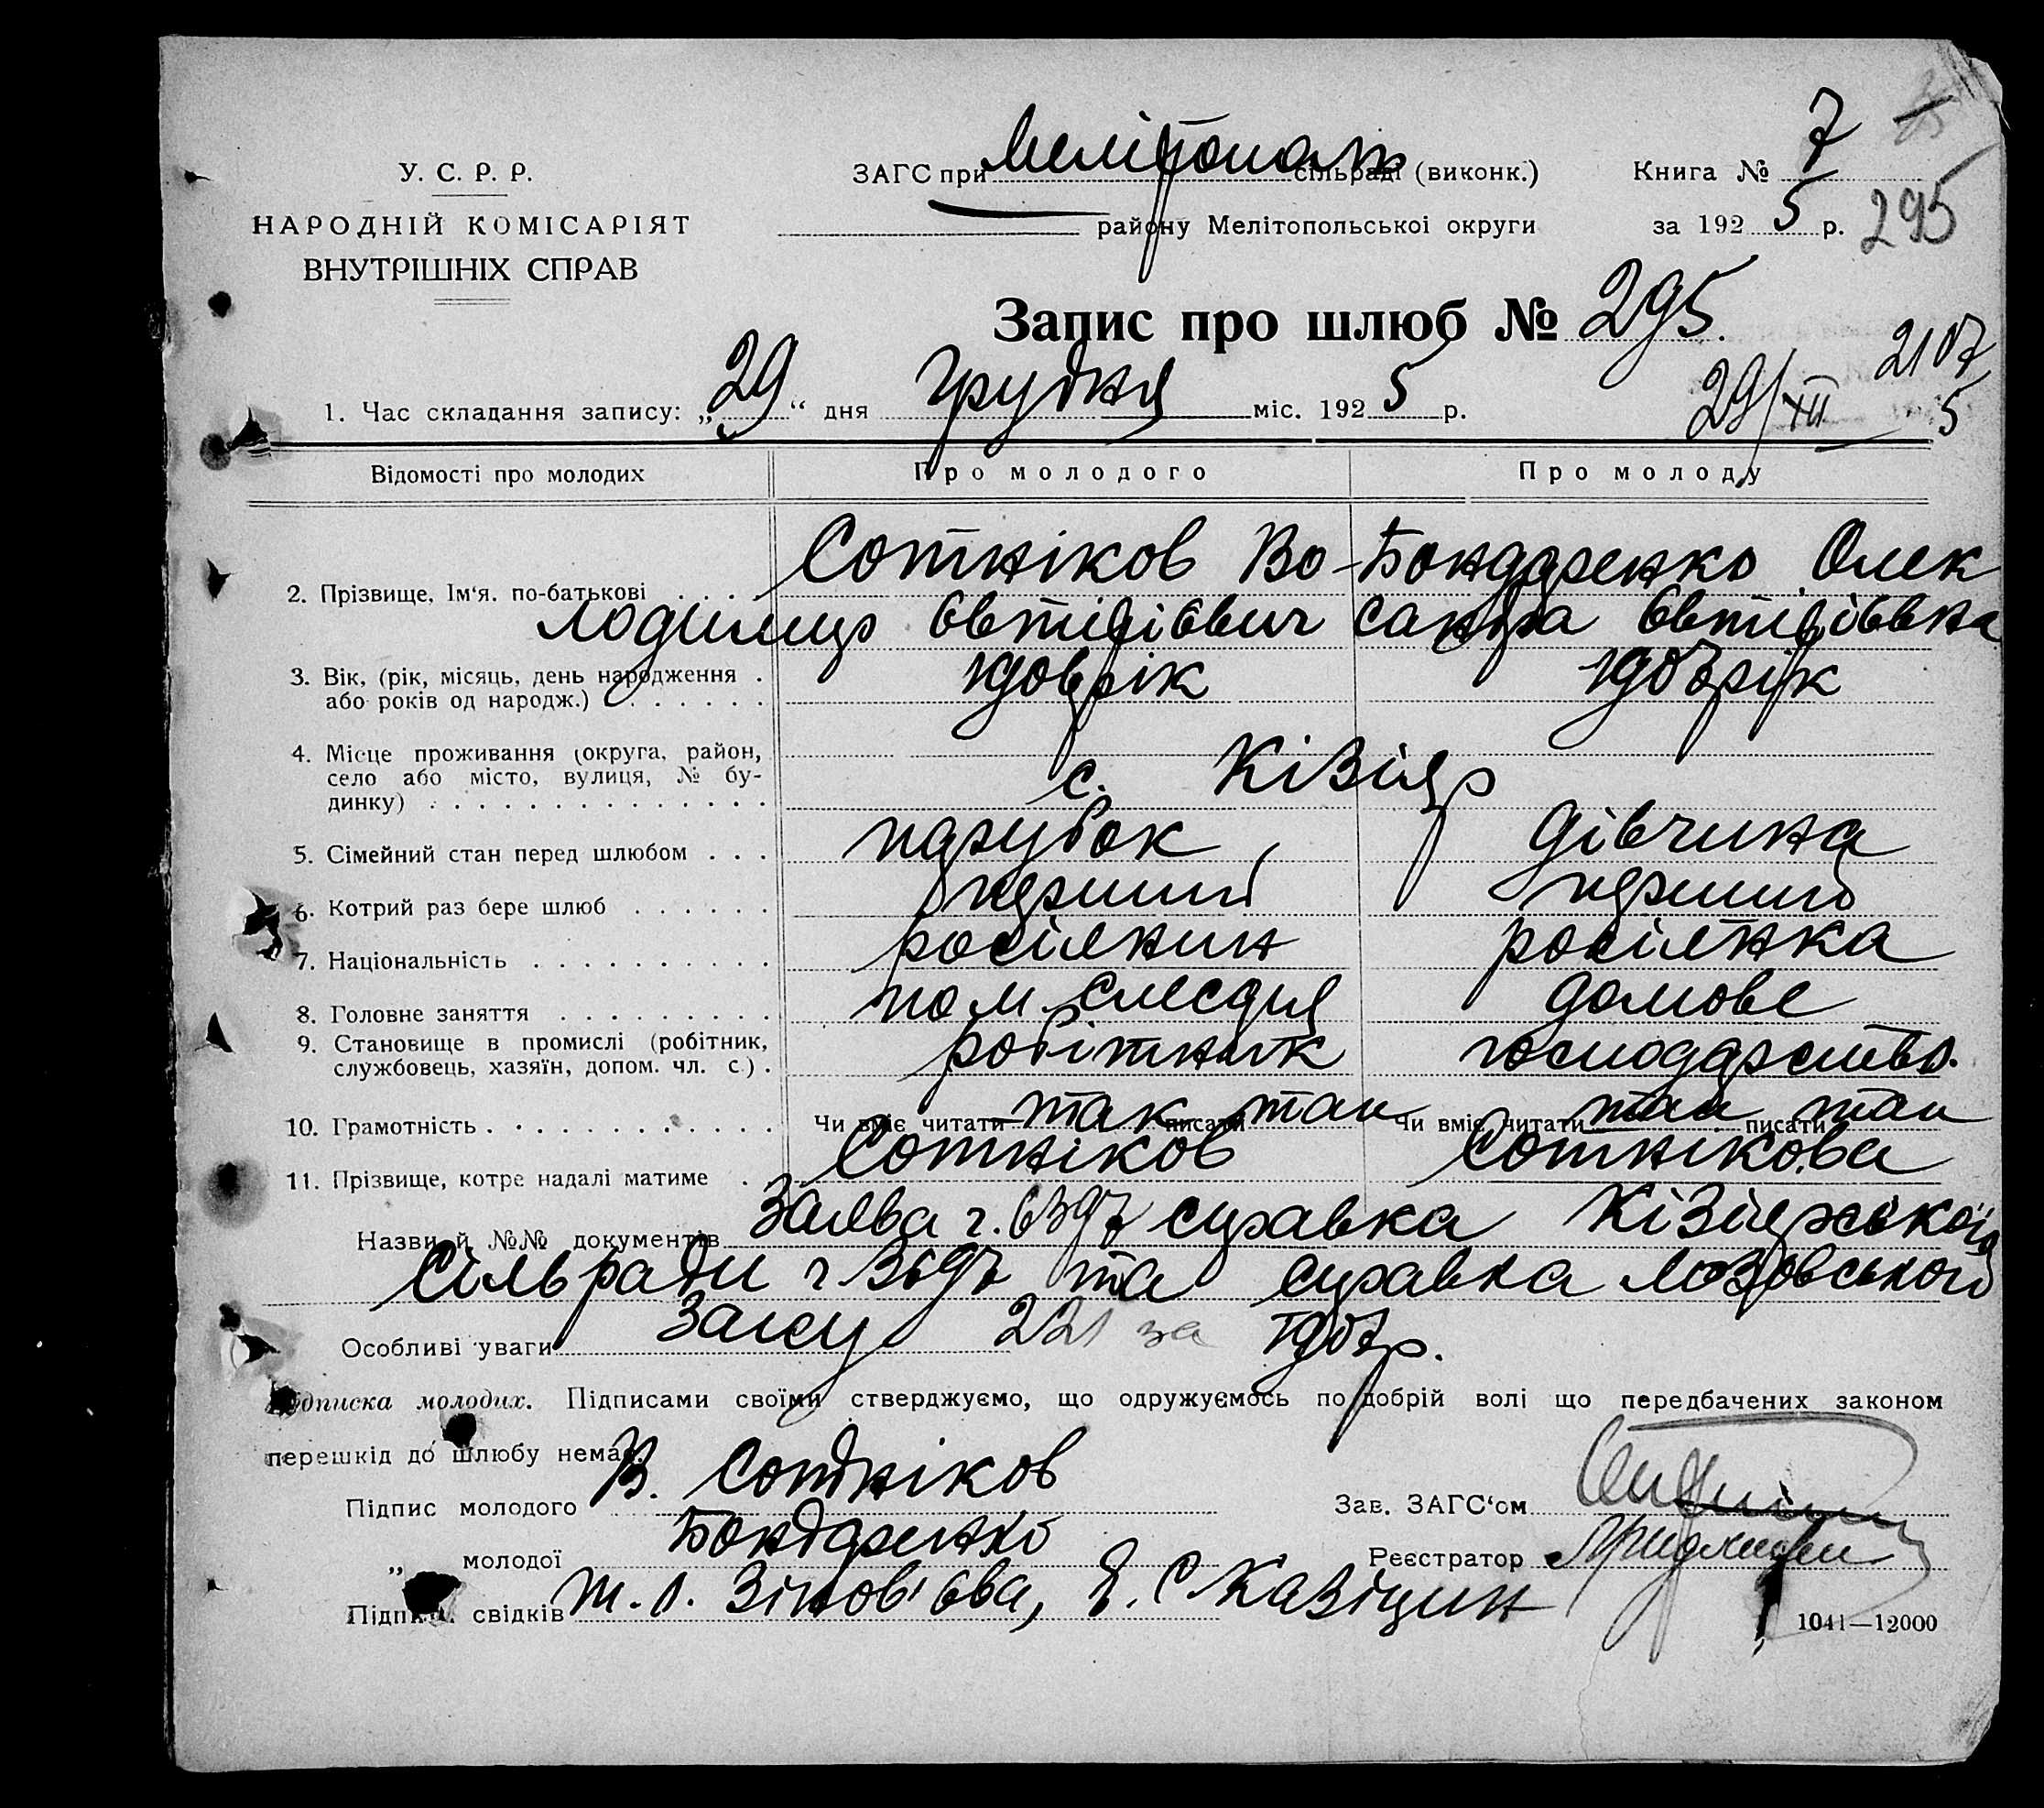 У. С. Р. Р.
НАРОДНІЙ КОМІСАРІЯТ
ВНУТРІШНІХ СПРАВ
ЗАГС при Мелітопол сільраді (виконк.)
району Мелітопольськоі округи
Книга № 7
за 1925 р. 295
Запис про шлюб № 295.
2107
29/XII 5
1. Час складання запису: „29“ дня грудня міс. 1925 р.
Відомості про молодих Про молодого Про молоду
2. Прізвище, Ім‘я. по-батькові . . . . Сотніков Во- Бондаренко Олек
лодимир Євтифієвич сандра Євтифієвна
3. Вік, (рік, місяць, день народження . рік рік
або років од народж.) . . . . . .
4. Місце проживання (округа, район,
село або місто, вулиця, № бу- с. Кізіяр
динку) . . . . . . . . . . . . . .
5. Сімейний стан перед шлюбом . . . парубок дівчина
6. Котрий раз бере шлюб . . . . . . перший перший
7. Національність . . . . . . . . . . росіянин росіянка
8. Головне заняття . . . . . . . . . пом. слесаря домове
9. Становище в промислі (робітник, робітник господарство.
службовець, хазяїн, допом. чл. с.) .
10. Грамотність . . . . . . . . . . . Чи вміє читати так писати так Чи вміє читати так писати так
11. Прізвище, котре надалі матиме . . Сотніков Сотнікова
Назви й №№ документів Заява ч. справка Кізіярської
Сільради ч та справка Лозовського
Особливі уваги Загсу 221 за р.
Підписка молодих. Підписами своїми стверджуємо, що одружуємось по добрій волі що передбачених законом
перешкід до шлюбу немає.
Підпис молодого В. Сотніков
Зав. ЗАГС‘ом
„ молодої Бондаренко
Реєстратор
Підписи свідків Зінов'єва, Казіцин
1041—12000